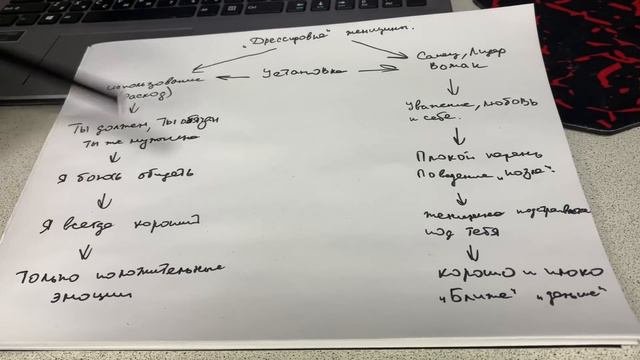 „Дрессировка" женщины.
Установка
Использование
(расход)
Ты должен, ты обязан
ты же мужчина
Я боюсь обидеть
Я всегда хороший
Только положительные
эмоции
Самец, Лидер
Вожак
Уважение, любовь
к себе.
Плохой парень
Поведение „козла".
женщина подстраивается
под тебя
хорошо и плохо
„Ближе" „дальше"